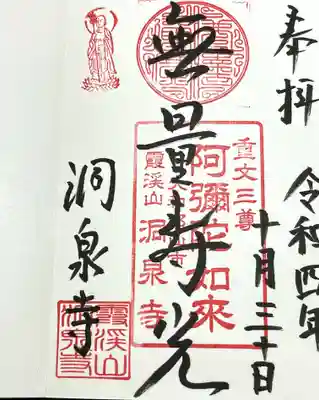 奉拝
令和四年
十月三十日
重文三尊
阿彌陀如來
大和郡山市
霞渓山 洞泉寺
無量寿光
洞泉寺
霞渓山
洞泉寺